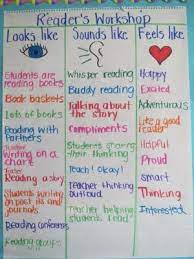 Reader's Workshop
Looks like
Sounds like
Feels like
Students are
reading books
Book baskets
Lots of books
Reading with
Partners
Teacher
Writing on a
chart
Teacher
Reading a story
Students Writing
on post its and
journals
Reading Conferences
Reading groups
Whisper reading
Buddy reading
Talking about
the story
Compliments
Students sharing
their thinking
Teach! Okay!
Teacher thinking
outloud
Teacher helping
students
Happy
Excited
Adventurous
Like a good
reader!
Helpful
Proud
Smart
Thinking
Interested